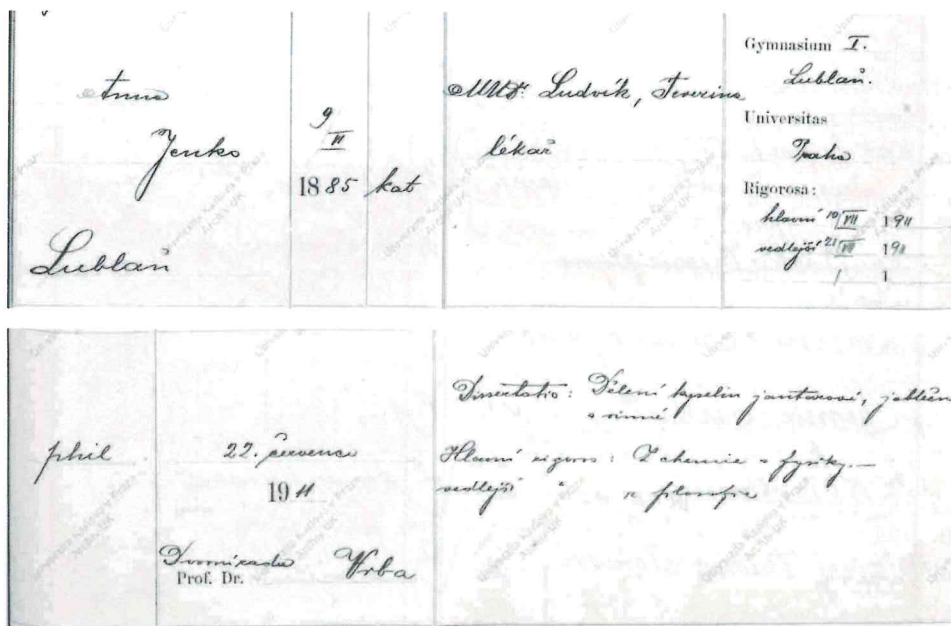 Anna
Jenko
Lublaň
9/II
1885
kat
MUDr. Ludvík, Terezina
lékař
Gymnasium I.
Lublaň.
Universitas
Praha
Rigorosa:
hlavní 10/VII 1911
vedlejší 21/VII 1911
/ 1
phil
22. července
1911
Dvorní rada
Prof. Dr. Vrba
Dissertatio: Dělení kyselin jantarové, jablečné
a vinné
Hlavní rigoros: Z chemie a fysiky.—
vedlejší " z filosofie